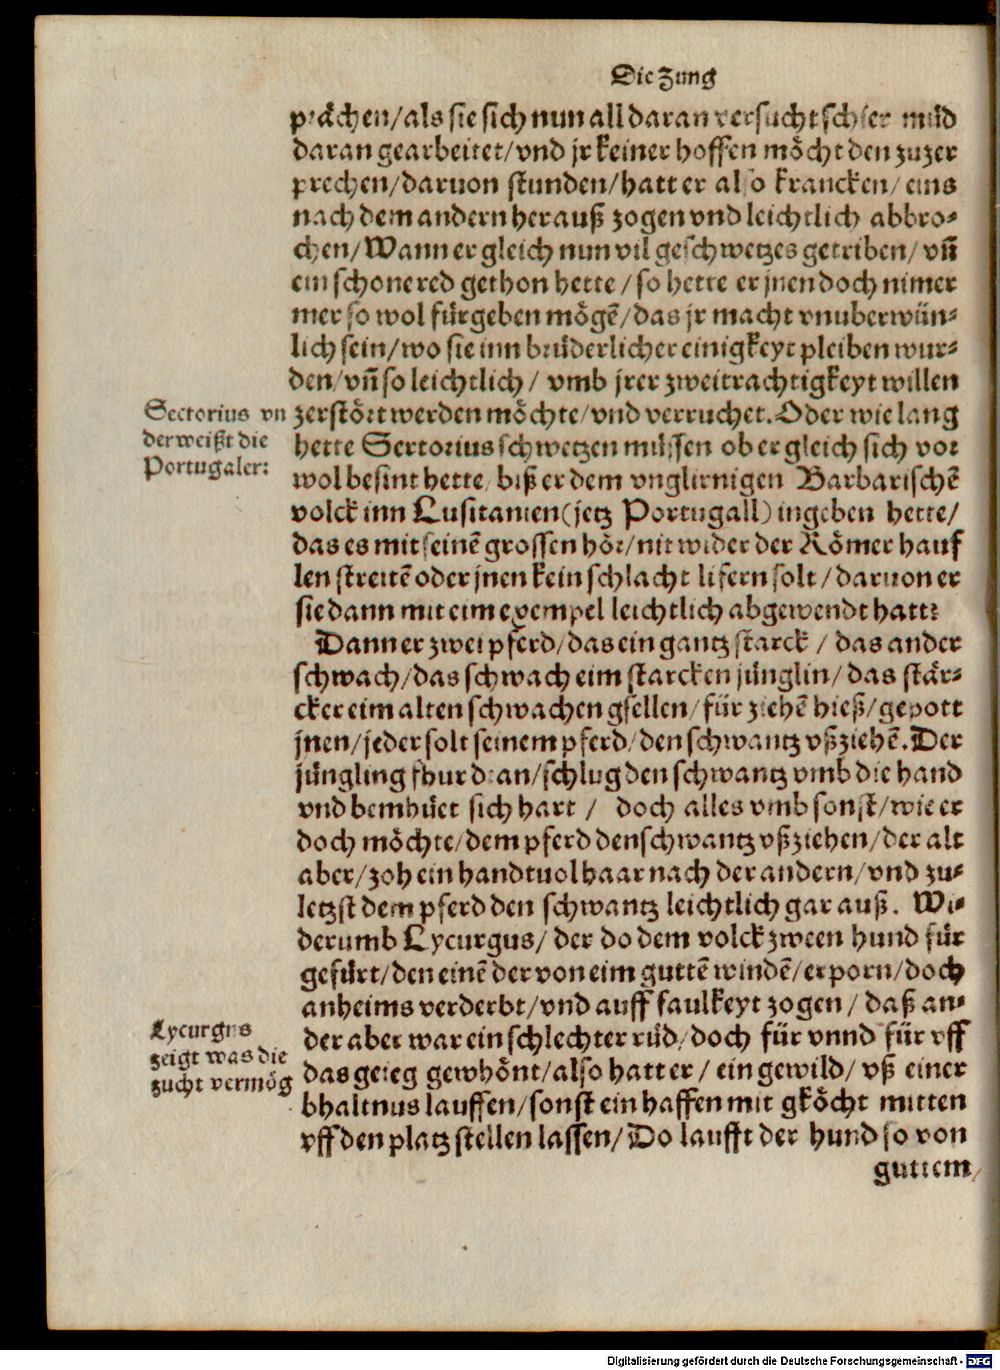 Die Zung
prächen/als sie sich nun all daran versucht schier müd
daran gearbeitet/vnd jr keiner hoffen möcht den zuzer
prechen/daruon stunden/hatt er also krancken/eins
nach dem andern herauß zogen vnd leichtlich abbro⸗
chen/Wann er gleich nun vil geschwetzes getriben/vñ
ein schone red gethon hette/so hette er jnen doch nimer
mer so wol fürgeben mögẽ/das jr macht vnuberwün⸗
lich sein/wo sie inn brüderlicher einigkeyt pleiben wur⸗
den/vñ so leichtlich/vmb jrer zweitrachtigkeyt willen
Sectorius vn
derweißt die
Portugaler:
zerstört werden möchte/vnd verruchet. Oder wie lang
hette Sertorius schwetzen müssen ob er gleich sich vor
wol besint hette/biß er dem vnglirnigen Barbarischẽ
volck inn Lusitanien(jetz Portugall)ingeben hette/
das es mit seinẽ grossen hör/nit wider der Römer hauf
len streitẽ oder jnen kein schlacht lifern solt/daruon er
sie dann mit eim exempel leichtlich abgewendt hatt:
Dann er zwei pferd/das ein gantz starck/das ander
schwach/das schwach eim starcken jünglin/das stär⸗
cker eim alten schwachen gsellen/für ziehẽ hieß/gepott
jnen/jeder solt seinem pferd/den schwantz vßziehẽ. Der
jüngling fhur dran/schlug den schwantz vmb die hand
vnd bemhüet sich hart/doch alles vmb sonst/wie er
doch möchte/dem pferd den schwantz vßziehen/der alt
aber/zoh ein handtuol haar nach der andern/vnd zu⸗
letzst dem pferd den schwantz leichtlich gar auß. Wi⸗
derumb Lycurgus/der do dem volck zween hund für
gefürt/den einẽ der von eim guttẽ windẽ/erporn/doch
anheims verderbt/vnd auff faulkeyt zogen/daß an⸗
Lycurgus
zeigt was die
zucht vermög
der aber war ein schlechter rüd/doch für vnnd für vff
das geieg gewhönt/also hatt er/ein gewild/vß einer
bhaltnus lauffen/sonst ein haffen mit gköcht mitten
vff den platz stellen lassen/Do laufft der hund so von
guttem
Digitalisierung gefördert durch die Deutsche Forschungsgemeinschaft - DFG